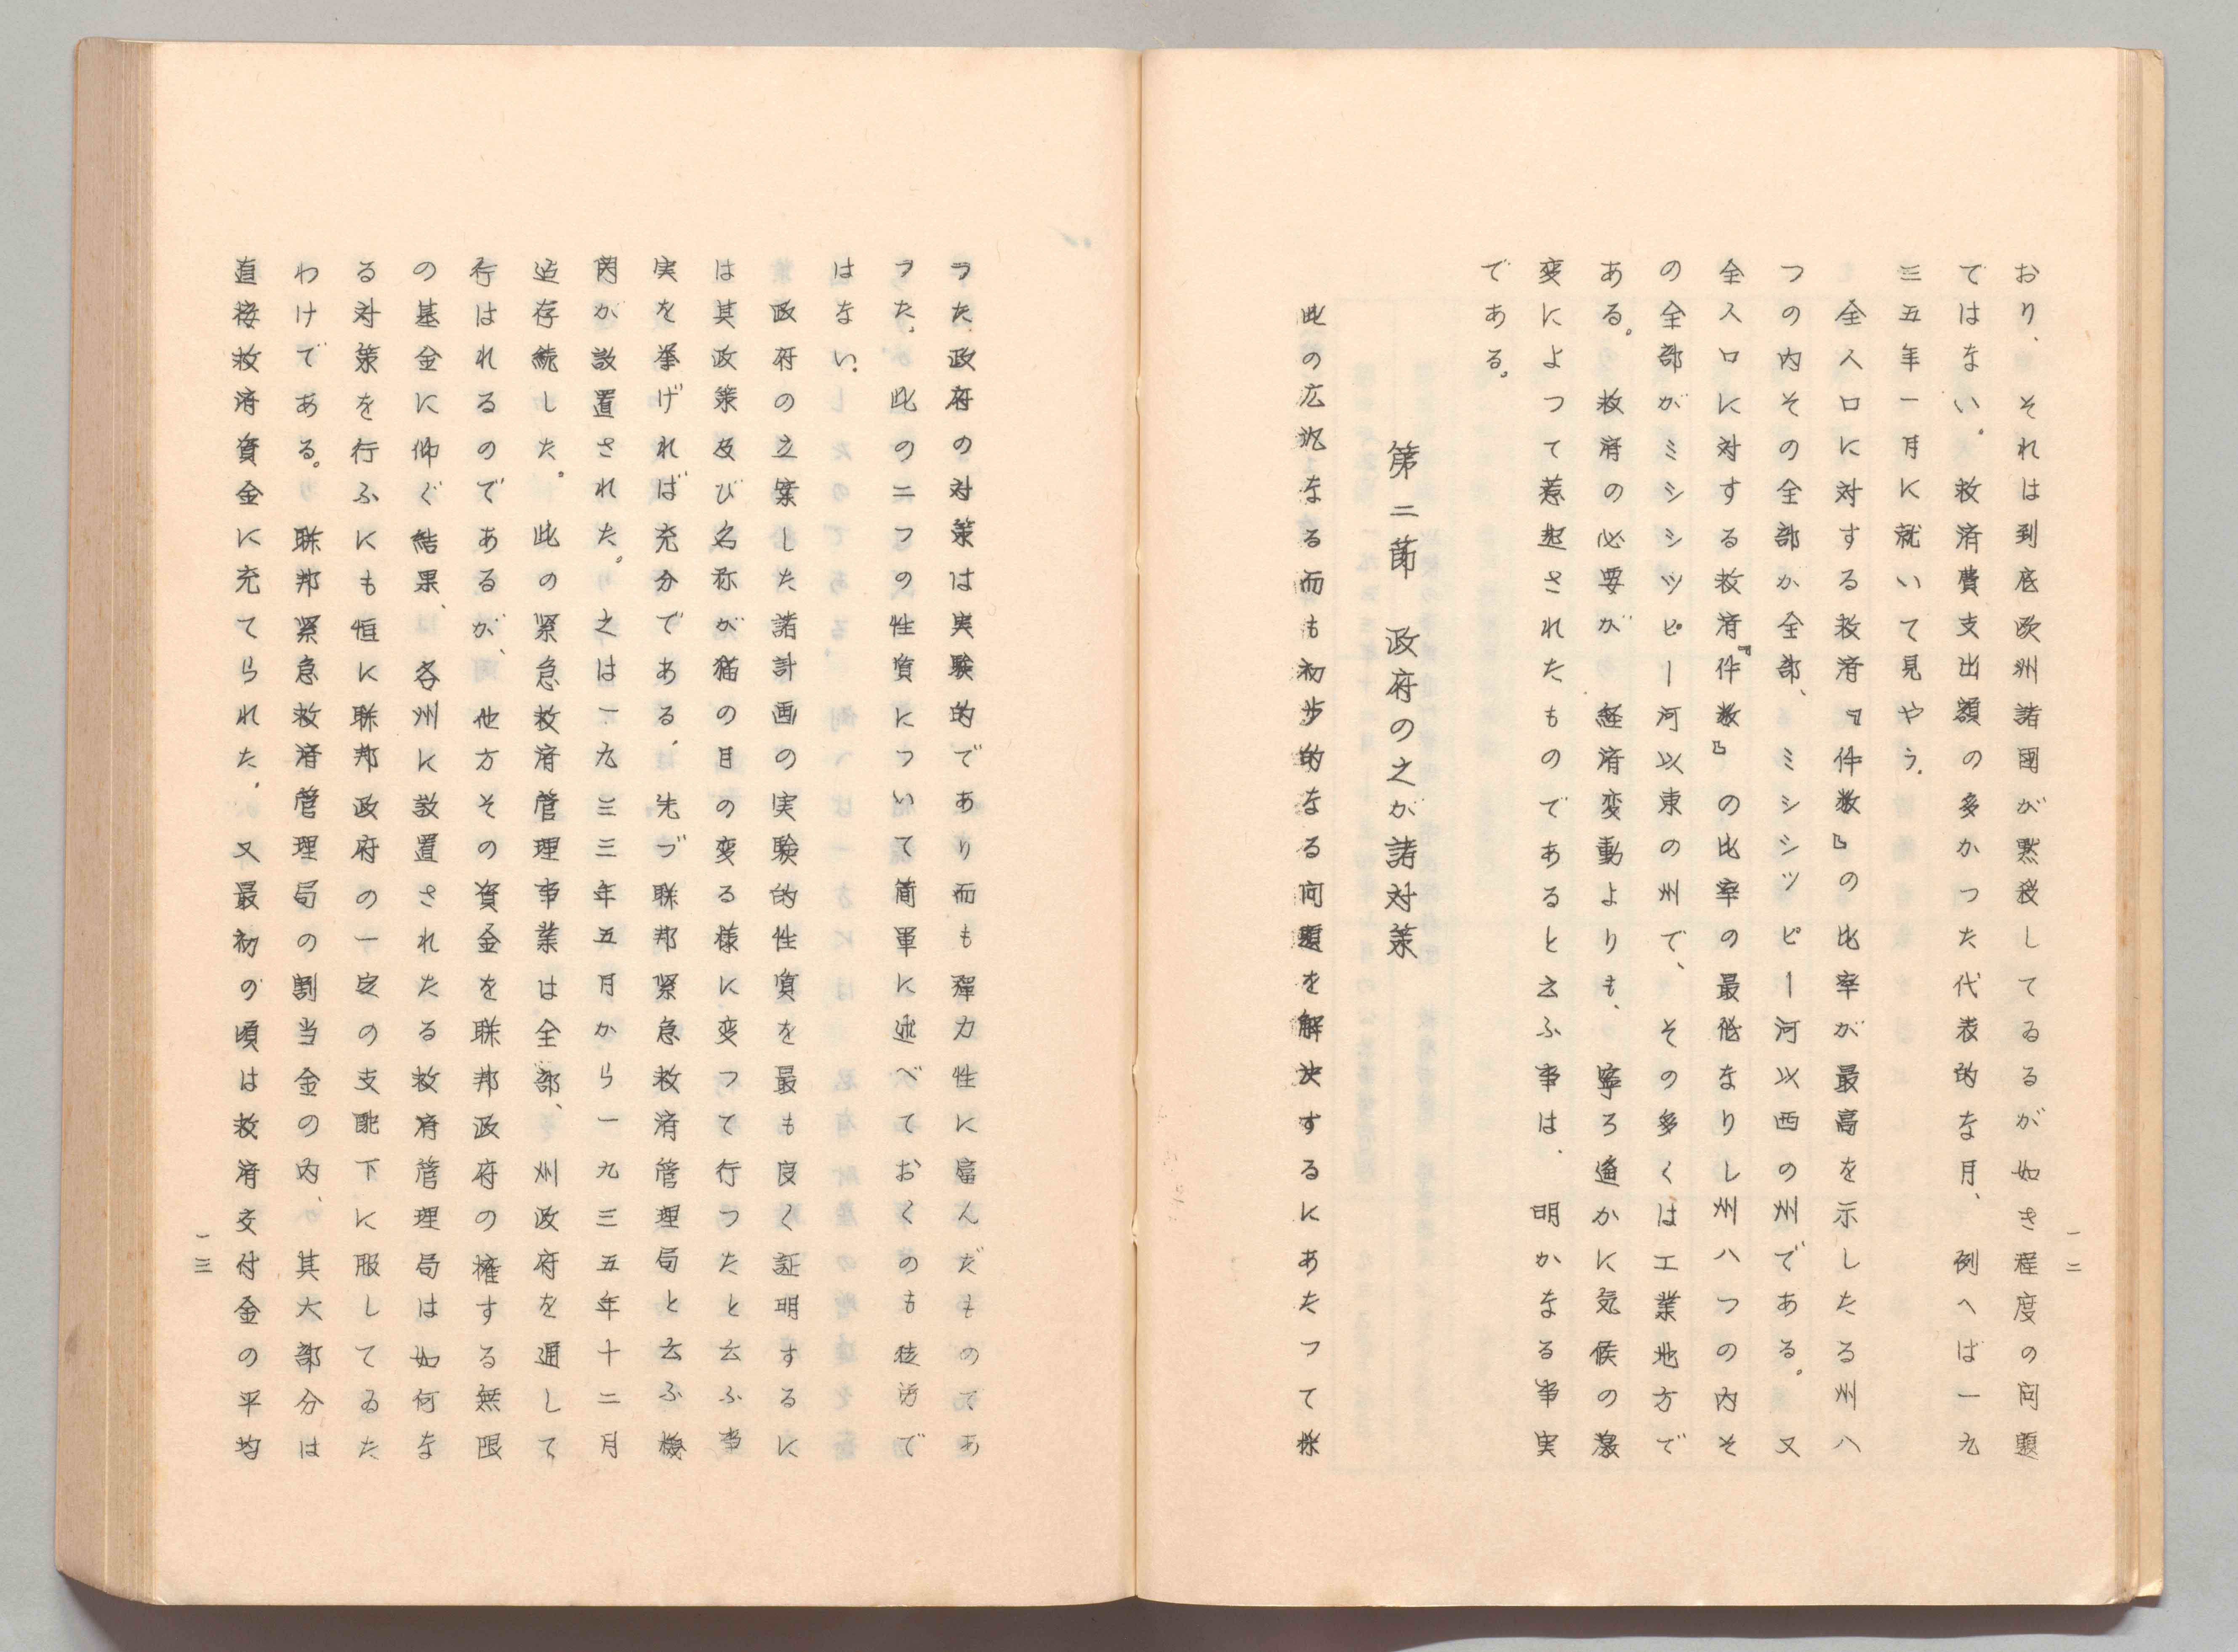 一二
おり、それは到底欧洲諸國が黙殺してゐるが如き程度の問題
ではない。救済費支出額の多かつた代表的な月、例へば一九
三五年一月に就いて見やう。
全人口に対する救済『件数』の比率が最高を示したる州八
つの内その全部か全部、ミシシツピー河以西の州である。又
全人口に対する救済『件数』の比率の最低なりし州八つの内そ
の全部がミシシツピー河以東の州で、その多くは工業地方で
ある。救済の必要が経済変動よりも、寧ろ遙かに気候の激
変によつて惹起されたものであると云ふ事は、明かなる事実
である。
第二節 政府の之が諸対策
此の広汎なる而も初歩的なる問題を解決するにあたつて採
つた政府の対策は実験的であり而も弾力性に富んだものてあ
つた、此の二つの性質について簡単に述べておくのも徒労で
はない、
政府の立案した諸計画の実験的性質を最も良く証明するに
は其政策及び名称が猫の目の変る様に変つて行つたと云ふ事
実を挙げれば充分である、先づ聯邦緊急救済管理局と云ふ機
関が設置された。之は一九三三年五月から一九三五年十二月
迄存続した。此の緊急救済管理事業は全部、州政府を通して
行はれるのであるが、他方その資金を聯邦政府の擁する無限
の基金に仰ぐ結果、各州に設置されたる救済管理局は如何な
る対策を行ふにも恒に聯邦政府の一定の支配下に服してゐた
わけである。聯邦緊急救済管理局の割当金の内、其大部分は
直接救済資金に充てられた、又最初の頃は救済交付金の平均
一三